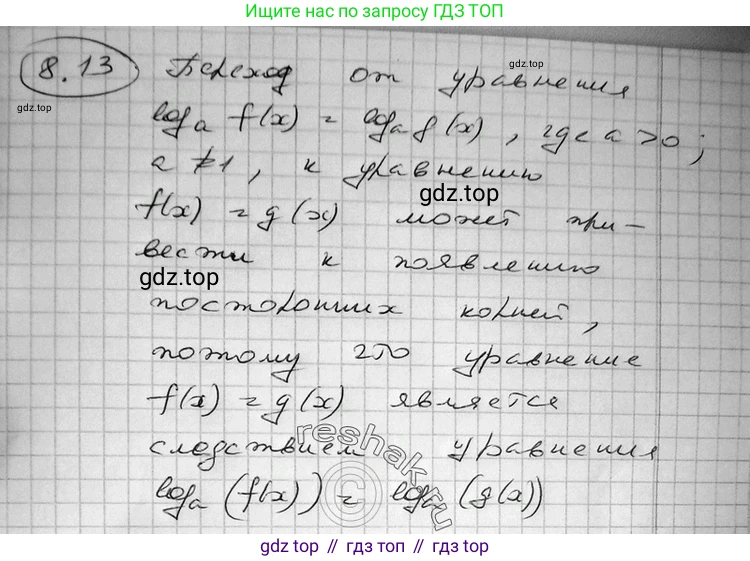 Ищите нас по запросу ГДЗ ТОП
8.13 Переход от уравнения
gdz.top
log_a f(x) = log_a g(x), где a > 0;
a ≠ 1, к уравнению
gdz.top
f(x) = g(x) может при-
вести к появлению
gdz.top
посторонних корней,
потому что уравнение
f(x) = g(x) является
следствием уравнения
reshak.ru
©
log_a (f(x)) = log_a (g(x))
gdz top // гдз топ // gdz top